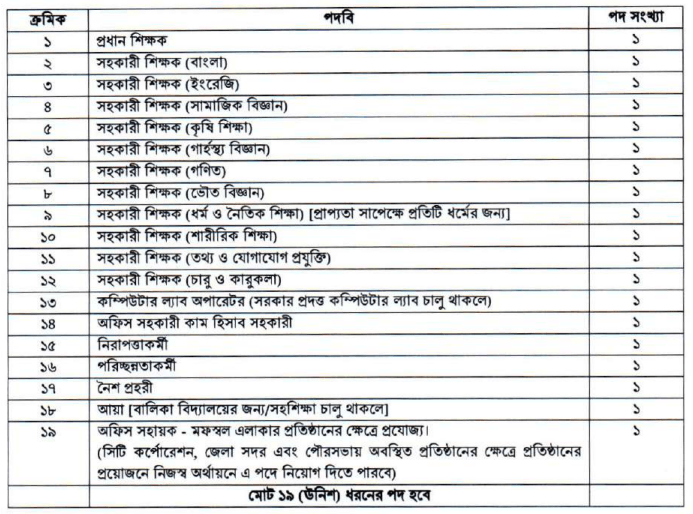 ক্রমিক পদবি পদ সংখ্যা
১ প্রধান শিক্ষক ১
২ সহকারী শিক্ষক (বাংলা) ১
৩ সহকারী শিক্ষক (ইংরেজি) ১
৪ সহকারী শিক্ষক (সামাজিক বিজ্ঞান) ১
৫ সহকারী শিক্ষক (কৃষি শিক্ষা) ১
৬ সহকারী শিক্ষক (গার্হস্থ্য বিজ্ঞান) ১
৭ সহকারী শিক্ষক (গণিত) ১
৮ সহকারী শিক্ষক (ভৌত বিজ্ঞান) ১
৯ সহকারী শিক্ষক (ধর্ম ও নৈতিক শিক্ষা) [প্রাপ্যতা সাপেক্ষে প্রতিটি ধর্মের জন্য] ১
১০ সহকারী শিক্ষক (শারীরিক শিক্ষা) ১
১১ সহকারী শিক্ষক (তথ্য ও যোগাযোগ প্রযুক্তি) ১
১২ সহকারী শিক্ষক (চারু ও কারুকলা) ১
১৩ কম্পিউটার ল্যাব অপারেটর (সরকার প্রদত্ত কম্পিউটার ল্যাব চালু থাকলে) ১
১৪ অফিস সহকারী কাম হিসাব সহকারী ১
১৫ নিরাপত্তাকর্মী ১
১৬ পরিচ্ছন্নতাকর্মী ১
১৭ নৈশ প্রহরী ১
১৮ আয়া [বালিকা বিদ্যালয়ের জন্য/সহশিক্ষা চালু থাকলে] ১
১৯ অফিস সহায়ক - মফস্বল এলাকার প্রতিষ্ঠানের ক্ষেত্রে প্রযোজ্য। ১
(সিটি কর্পোরেশন, জেলা সদর এবং পৌরসভায় অবস্থিত প্রতিষ্ঠানের ক্ষেত্রে প্রতিষ্ঠানের
প্রয়োজনে নিজস্ব অর্থায়নে এ পদে নিয়োগ দিতে পারবে)
মোট ১৯ (ঊনিশ) ধরনের পদ হবে